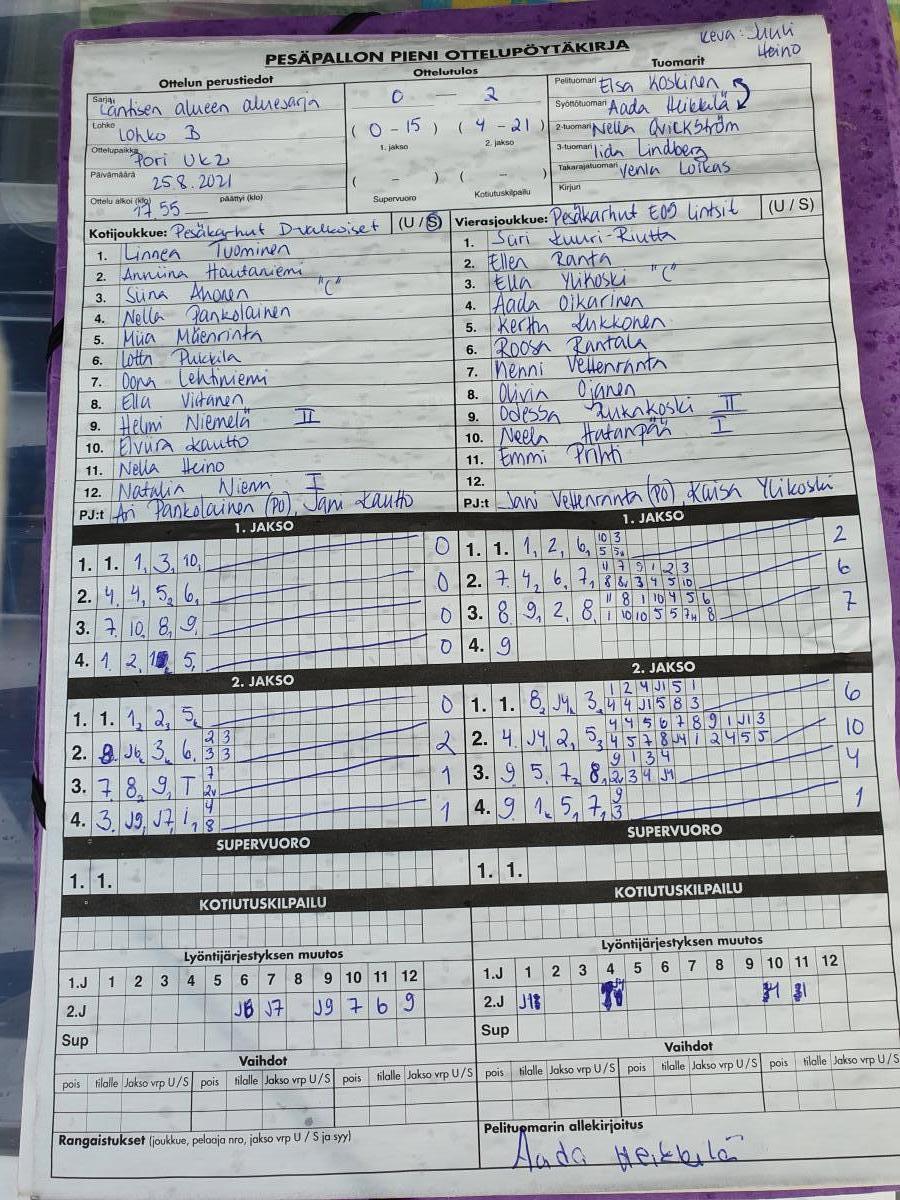 Keva: Juuli
Heino
PESÄPALLON PIENI OTTELUPÖYTÄKIRJA
Ottelun perustiedot
Ottelutulos
Tuomarit
Sarja: Läntisen alueen aluesarja
0 — 2
Pelituomari Elsa Koskinen
Syöttötuomari Aada Heikkilä
Lohko Lohko B
( 0 - 15 ) ( 4 - 21 )
1. jakso 2. jakso
2-tuomari Nella Qvickström
Ottelupaikka Pori UK2
3-tuomari Iida Lindberg
Päivämäärä 25.8.2021
( - ) ( - )
Supervuoro Kotiutuskilpailu
Takarajatuomari Venla Loikas
Ottelu alkoi (klo) 17.55 päättyi (klo)
Kirjuri
Kotijoukkue: Pesäkarhut D-valkoiset (U / S)
1. Linnea Tuominen
2. Anniina Hautaniemi
3. Siina Ahonen "C"
4. Nella Pankolainen
5. Miia Mäenrinta
6. Lotta Pukkila
7. Oona Lehtiniemi
8. Ella Viitanen
9. Helmi Niemelä II
10. Elviira Kautto
11. Nella Heino
12. Natalia Niemi I
PJ:t Ari Pankolainen (PO), Jani Kautto
Vierasjoukkue: Pesäkarhut E09 Lintsit (U / S)
1. Sari Kuuri-Riutta
2. Ellen Ranta
3. Ella Ylikoski "C"
4. Aada Oikarinen
5. Kerttu Kukkonen
6. Roosa Rantala
7. Henni Vettenranta
8. Olivia Ojanen
9. Odessa II
10. Neela Hatanpää I
11. Emmi Prihti
12.
PJ:t Jani Vettenranta (PO), Kaisa Ylikoski
1. JAKSO
1. 1. 1, 3, 10, 0
2. 4. 4, 5, 6, 0
3. 7. 10, 8, 9, 0
4. 1. 2, 5, 0
1. JAKSO
10 3
1. 1. 1, 2, 6, 5 5 2
11 7 9 1 2 3
2. 7. 4, 6, 7, 8 8 3 4 5 10 6
11 8 1 10 4 5 6
3. 8. 9, 2, 8, 1 10 10 5 5 7 8 7
4. 9
2. JAKSO
1. 1. 1, 2, 5, 0
2 3
2. 9. J6, 3, 6, 3 3 2
7
3. 7. 8, 9, T 2 1
4
4. 3. J9, J7, 1, 8 1
2. JAKSO
1 2 4 J1 5 1
1. 1. 8, J4, 3, 4 4 J1 5 8 3 6
4 4 5 6 7 8 9 1 J1 3
2. 4. J4, 2, 5, 4 5 7 8 J4 1 2 4 5 5 10
9 1 3 4
3. 9 5, 7, 8, 2 3 4 J1 4
9
4. 9. 1, 5, 7, 3 1
SUPERVUORO
1. 1.
SUPERVUORO
1. 1.
KOTIUTUSKILPAILU
KOTIUTUSKILPAILU
Lyöntijärjestyksen muutos
1.J 1 2 3 4 5 6 7 8 9 10 11 12
2.J J6 J7 J9 7 6 9
Sup
Lyöntijärjestyksen muutos
1.J 1 2 3 4 5 6 7 8 9 10 11 12
2.J
Sup
Vaihdot
pois tilalle Jakso vrp U / S pois tilalle Jakso vrp U / S pois tilalle Jakso vrp U / S
Vaihdot
pois tilalle Jakso vrp U / S pois tilalle Jakso vrp U / S pois tilalle Jakso vrp U / S
Rangaistukset (joukkue, pelaaja nro, jakso vrp U / S ja syy)
Pelituomarin allekirjoitus
Aada Heikkilä